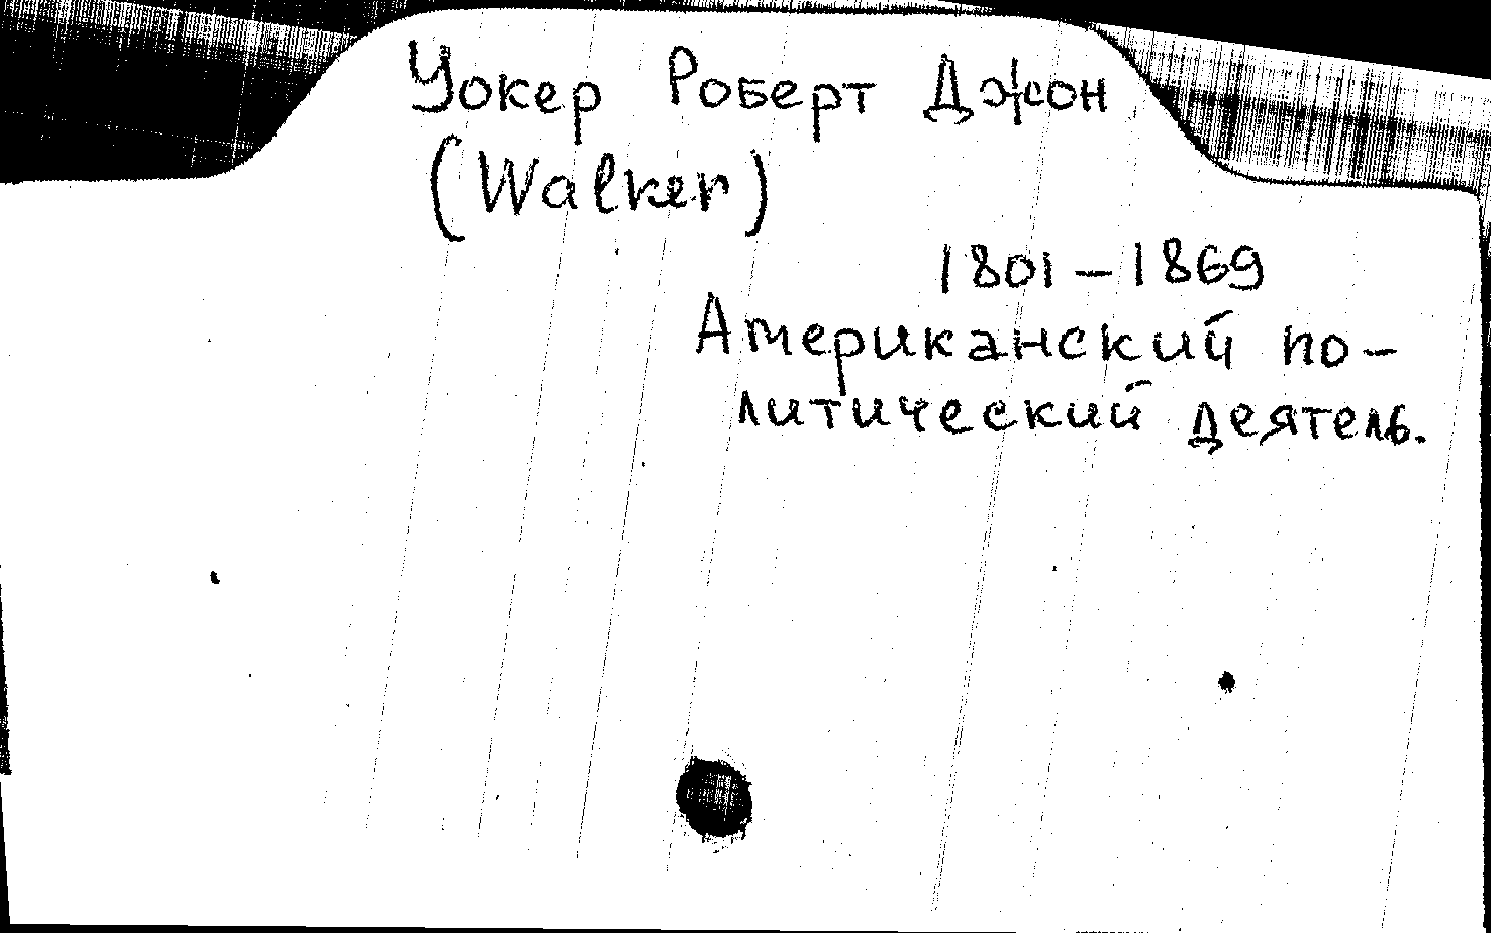 Уокер Роберт Джон
(Walker)
1801-1869
Американский по-
литический деятель.